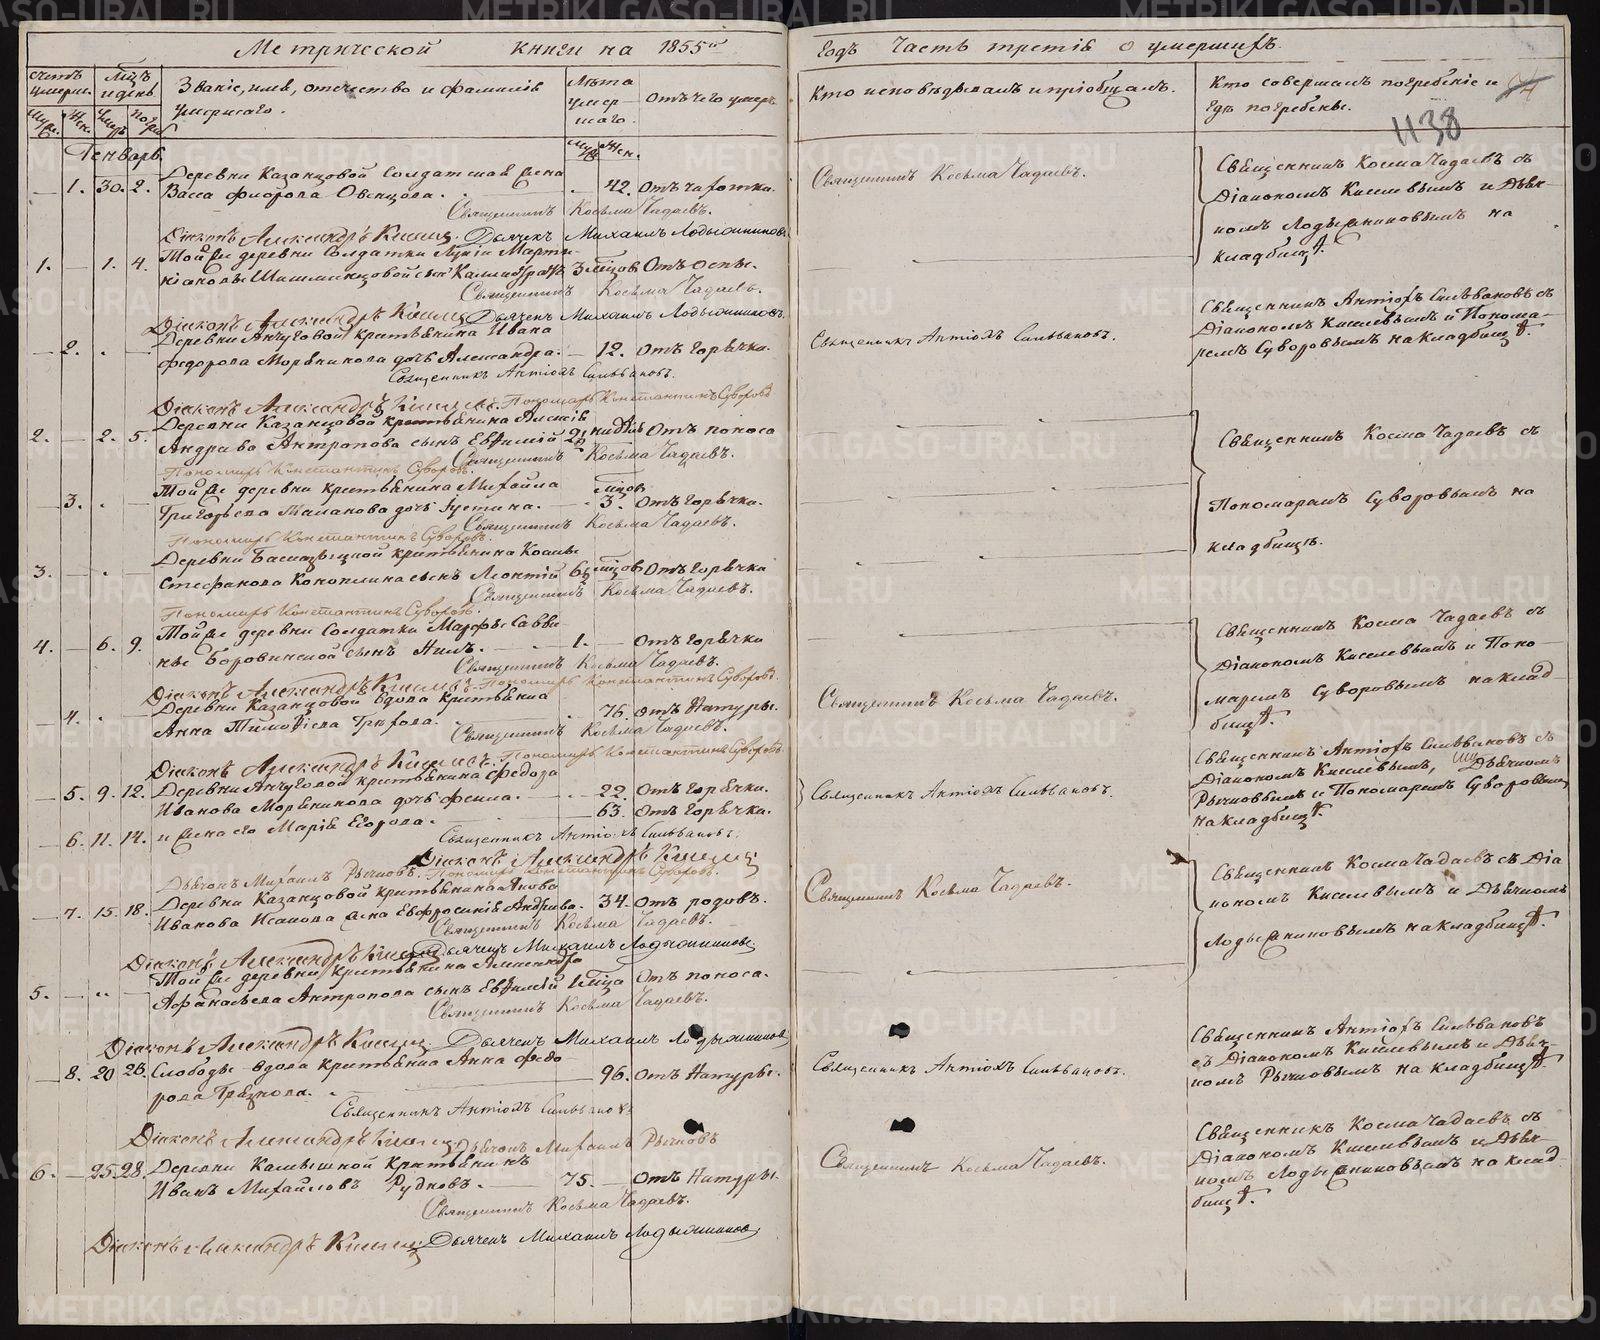 Метрической книги на 1855й
Счетъ умерш.
Мцъ и день
Званіе, имя, отчество и фамилія умершаго.
Лѣта умершаго.
Отъ чего умеръ
Муж. Жен.
Генварь
Деревни Казанцовой Солдатская жена
— 1. 30. 2. Васса Фиорова Овсцова. 42. Отъ чахотки.
Священникъ Косьма Чадаевъ.
Діаконъ Александръ Киселев. Дьячекъ Михаилъ Лодыжниковъ
Той же деревни Солдатки
1. — 1. 4. 3 мѣцов Отъ оспы.
Священникъ Косьма Чадаевъ.
Діаконъ Александръ Киселев Дьячекъ Михаилъ Лодыжниковъ.
Деревни Анчуговой крестьянина Ивана
— 2. Федорова Моръникова дочь Александра. — 12. Отъ Горячки.
Священникъ Антіохъ Сильвановъ.
Діаконъ Александръ Киселев. Пономарь Константинъ Суворовъ
Деревни Казанцовой крестьянина Алексѣя
2. — 2. 5. Андреева Антропова сынъ Евфимій 2½ недѣль Отъ поноса
Священникъ Косьма Чадаевъ.
Пономарь Константинъ Суворовъ.
Той же деревни крестьянина Михаила мѣцов
— 3. Григорьева Маланова дочь Іустина. — 3. Отъ Горячки.
Священникъ Косьма Чадаевъ.
Пономарь Константинъ Суворовъ.
Деревни крестьянина Космы
3. — Стефанова Коноплина сынъ Леонтій 6½ мѣцов Отъ Горячки
Священникъ Косьма Чадаевъ.
Пономарь Константинъ Суворовъ.
Той же деревни Солдатки Марфы Савви-
4. — 6. 9. ны Боровинской сынъ Нилъ. — 1. — Отъ Горячки
Священникъ Косьма Чадаевъ.
Діаконъ Александръ Киселев. Пономарь Константинъ Суворовъ.
Деревни Казанцовой вдова крестьянка
— 4. Анна Тимофіева Трифова. 76. Отъ Натуры.
Священникъ Косьма Чадаевъ.
Діаконъ Александръ Киселев. Пономарь Константинъ Суворовъ
Деревни Анчуговой крестьянина Федора
— 5. 9. 12. Иванова Моръникова дочь Фекла. 22. Отъ Горячки.
63. Отъ Горячки.
— 6. 11. 14. и жена его Марія Егорова.
Священникъ Антіохъ Сильвановъ.
Діаконъ Александръ Киселев
Дьячокъ Михаилъ Рычковъ. Пономарь Константинъ Суворовъ.
Деревни Казанцовой крестьянина Якова
— 7. 15. 18. Иванова Исакова жена Евфросинія Андреева. 34. Отъ родовъ.
Священникъ Косьма Чадаевъ.
Діаконъ Александръ Киселев Дьячекъ Михаилъ Лодыжниковъ.
Той же деревни крестьянина Александра
5. — Афанасьева Антропова сынъ Евфимій 1 мѣца Отъ поноса.
Священникъ Косьма Чадаевъ.
Діаконъ Александръ Киселев Дьячекъ Михаилъ Лодыжниковъ
— 8. 20 23. Слободы вдова крестьянка Анна Федо-
рова Грязнова. 96. Отъ Натуры.
Священникъ Антіохъ Сильвановъ
Діаконъ Александръ Киселев. Дьячокъ Михаилъ Рычковъ
6. — 25. 28. Деревни Камышной Крестьянинъ
Иванъ Михайловъ Рудковъ. — 75. — Отъ Натуры.
Священникъ Косьма Чадаевъ.
Діаконъ Александръ Киселев. Дьячекъ Михаилъ Лодыжниковъ.
Годъ Часть третія о умершихъ.
Кто исповѣдывалъ и пріобщалъ.
Кто совершалъ погребеніе и гдѣ погребены.
1138
Священникъ Косьма Чадаевъ.
Священникъ Косма Чадаевъ съ
Діакономъ Киселевымъ и Дьяч-
комъ Лодыжниковымъ на
кладбищѣ.
Священникъ Антіохъ Сильвановъ.
Священникъ Антіохъ Сильвановъ съ
Діакономъ Киселевымъ и Понома-
ремъ Суворовымъ на кладбищѣ.
Священникъ Косма Чадаевъ съ
Пономаремъ Суворовымъ на
кладбищѣ.
Священникъ Косьма Чадаевъ.
Священникъ Косма Чадаевъ съ
Діакономъ Киселевымъ и Поно-
маремъ Суворовымъ на клад-
бищѣ.
Священникъ Антіохъ Сильвановъ.
Священникъ Антіохъ Сильвановъ съ
Діакономъ Киселевымъ, Дьячкомъ
Рычковымъ и Пономаремъ Суворовымъ
на кладбищѣ.
Священникъ Косьма Чадаевъ.
Священникъ Косма Чадаевъ съ Діа
кономъ Киселевымъ и Дьячкомъ
Лодыжниковымъ на кладбищѣ.
Священникъ Антіохъ Сильвановъ.
Священникъ Антіохъ Сильвановъ
съ Діакономъ Киселевымъ и Дьяч-
комъ Рычковымъ на кладбищѣ.
Священникъ Косьма Чадаевъ.
Священникъ Косма Чадаевъ съ
Діакономъ Киселевымъ и Дьяч-
комъ Лодыжниковымъ на клад-
бищѣ.
METRIKI.GASO-URAL.RU